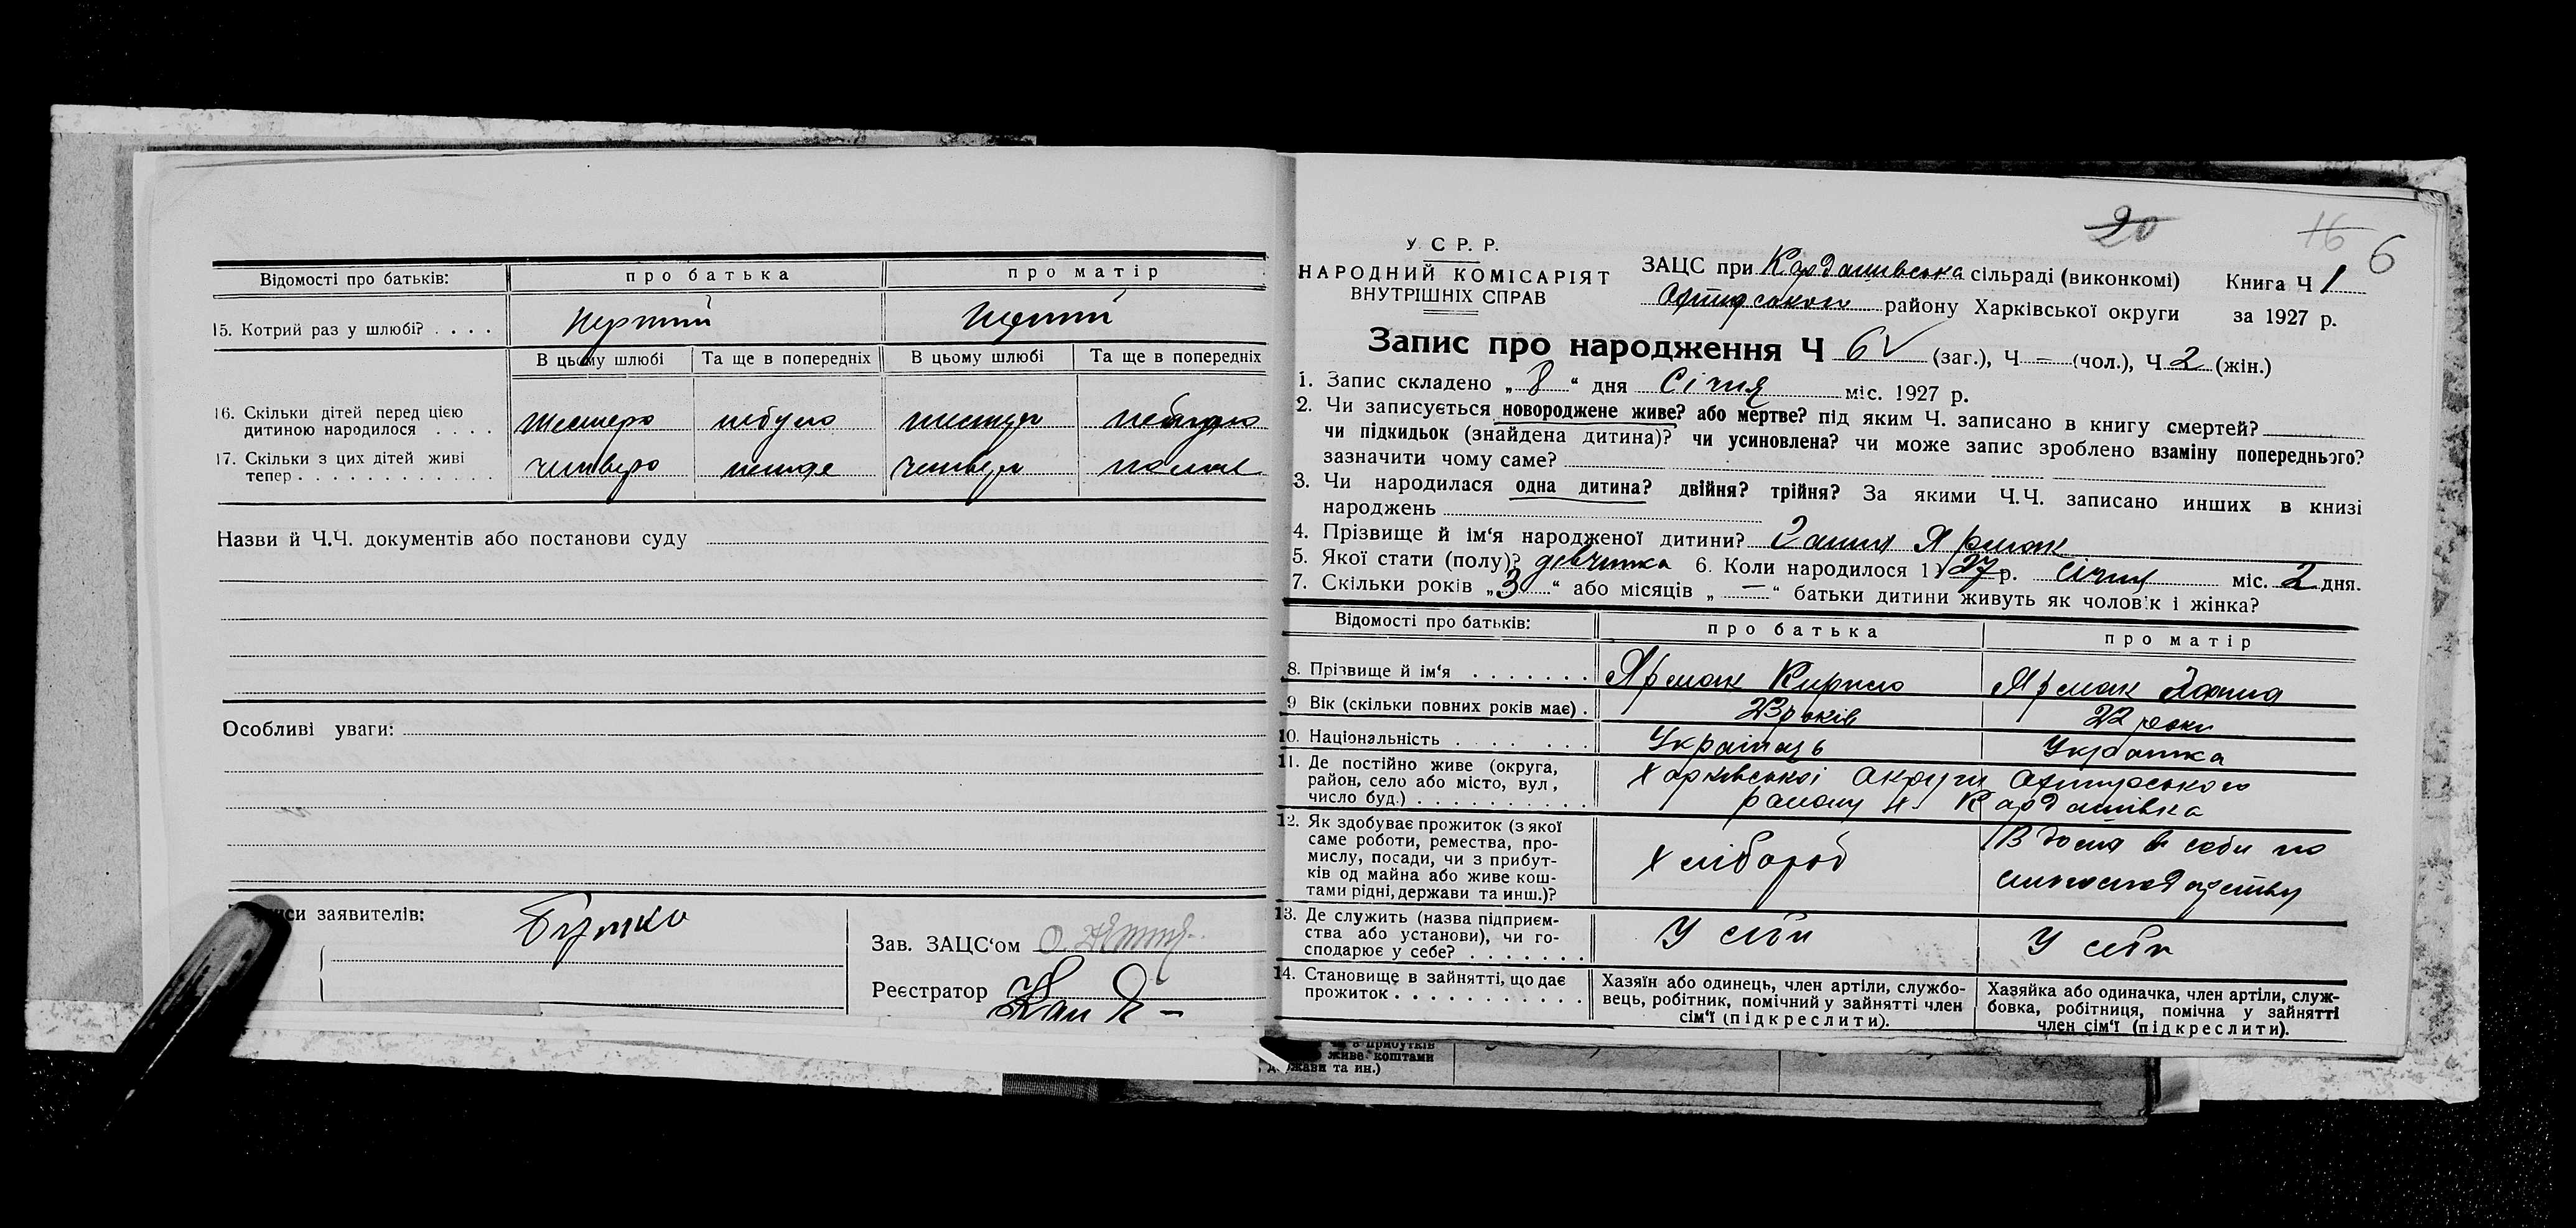 Відомості про батьків: про батька про матір
15. Котрий раз у шлюбі? . . . .
В цьому шлюбі Та ще в попередніх В цьому шлюбі Та ще в попередніх
16. Скільки дітей перед цією
дитиною народилося . . . .
шестеро небуло
17. Скільки з цих дітей живі
тепер . . . . . . . . . . . .
четверо немає четверо немає
Назви й Ч.Ч. документів або постанови суду
Особливі уваги:
заявителів:
Зав. ЗАЦС‘ом
Реєстратор
20 16 6
У. С Р. Р.
НАРОДНИЙ КОМІСАРІЯТ
ВНУТРІШНІХ СПРАВ
ЗАЦС при Кардашивська сільраді (виконкомі) Книга Ч 1
району Харківської округи за 1927 р.
Запис про народження Ч 6 (заг.), Ч – (чол.), Ч 2 (жін.)
1. Запис складено „ 8 “ дня Січня міс. 1927 р.
2. Чи записується новороджене живе? або мертве? під яким Ч. записано в книгу смертей?
чи підкидьок (знайдена дитина)? чи усиновлена? чи може запис зроблено взаміну попереднього?
зазначити чому саме?
3. Чи народилася одна дитина? двійня? трійня? За якими Ч.Ч. записано инших в книзі
народжень
4. Прізвище й ім‘я народженої дитини? Ярмак
5. Якої стати (полу)? дівчинка 6. Коли народилося 1 27 р. січня міс. 2 дня.
7. Скільки років „ 3 “ або місяців „ — “ батьки дитини живуть як чоловік і жінка?
Відомості про батьків: про батька про матір
8. Прізвище й ім‘я . . . . . . . Ярмак Кирило Ярмак
9 Вік (скільки повних років має) . 23 років 22 роки
10. Національність . . . . . . . Українець Українка
11. Де постійно живе (округа,
район, село або місто, вул,
число буд.) . . . . . . . . . .
Харківської округи Охтирського
району Кардашівка
12. Як здобуває прожиток (з якої
саме роботи, ремества, про-
мислу, посади, чи з прибут-
ків од майна або живе кош-
тами рідні, держави та инш.)?
Хлібороб
13. Де служить (назва підприєм-
ства або установи), чи го-
сподарює у себе? . . . . . . .
У себи У себи
14. Становище в зайнятті, що дає
прожиток . . . . . . . . . . .
Хазяїн або одинець, член артілі, службо-
вець, робітник, помічний у зайнятті член
сім‘ї (підкреслити).
Хазяйка або одиначка, член артілі, служ-
бовка, робітниця, помічна у зайнятті
член сім‘ї (підкреслити).
з прибутків
живе коштами
та ин.)